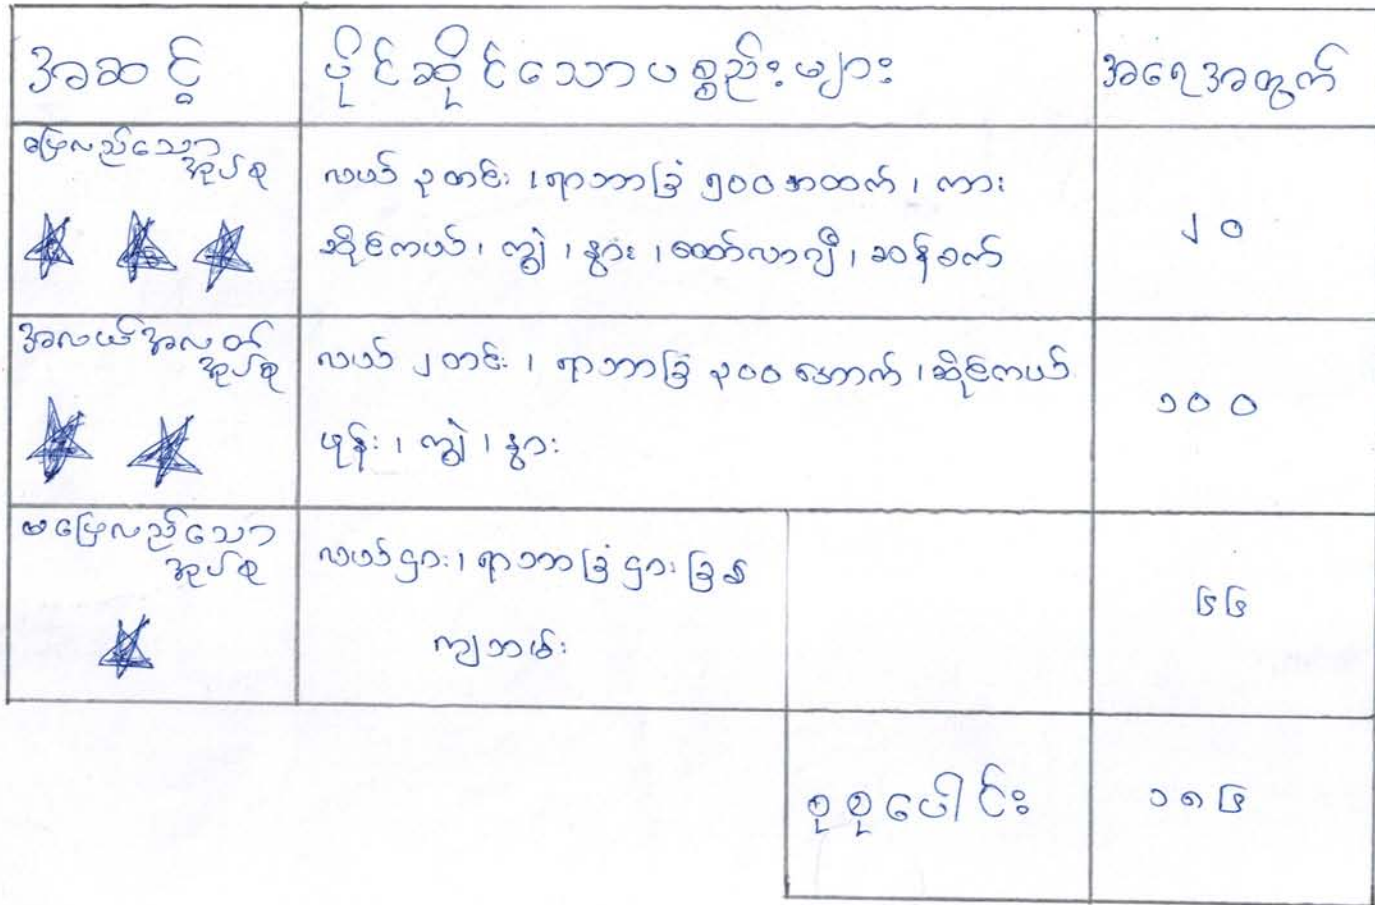 အဆင့်
ပိုင်ဆိုင်သောပစ္စည်းများ
အရေအတွက်
ပြေလည်သော
အုပ်စု
လယ် ၃တင်း ၊ ရာဘာခြံ ၅၀၀ အထက် ၊ ကား
ဆိုင်ကယ် ၊ ကျွဲ ၊ နွား ၊ ထော်လာဂျီ ၊ ဆန်စက်
၂၀
အလယ်အလတ်
အုပ်စု
လယ် ၂တင်း ၊ ရာဘာခြံ ၃၀၀ အောက် ၊ ဆိုင်ကယ်
ဖုန်း ၊ ကျွဲ ၊ နွား
၁၀၀
မပြေလည်သော
အုပ်စု
လယ်ငှား ၊ ရာဘာခြံငှားခြစ်
ကျဘမ်း
၆၆
စုစုပေါင်း
၁၈၆